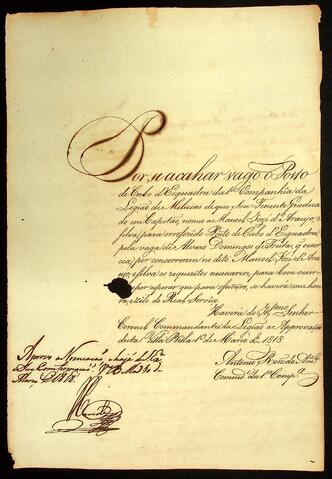 Por se acahar vago o Posto
de Cabo d'Esquadra da 1ª Companhia da
Legião de Milicias de que sou Tenente Gradua
do em Capitão, nomeio a Manoel José d'Araujo,
e Silva, para o referido Posto de Cabo d'Esquadra,
pela vaga de Alvaro Domingos de Freitas, q' o exer
cia; por concorrerem no dito Manoel José de Arau
jo, e Silva os requisitos necessarios, para bem o exercer
por esperar que para o futuro, se haverá com hon
ra, e zelo do Real Serviço
Haverá do Ill.mo Senhor
Coronel Commandante da Legião a Approvação
desta Villa Bella 1º de Março de 1818
Antonio
Comm.e da 1ª Comp.ª
Aprovo a Nomeação
Março 1818.